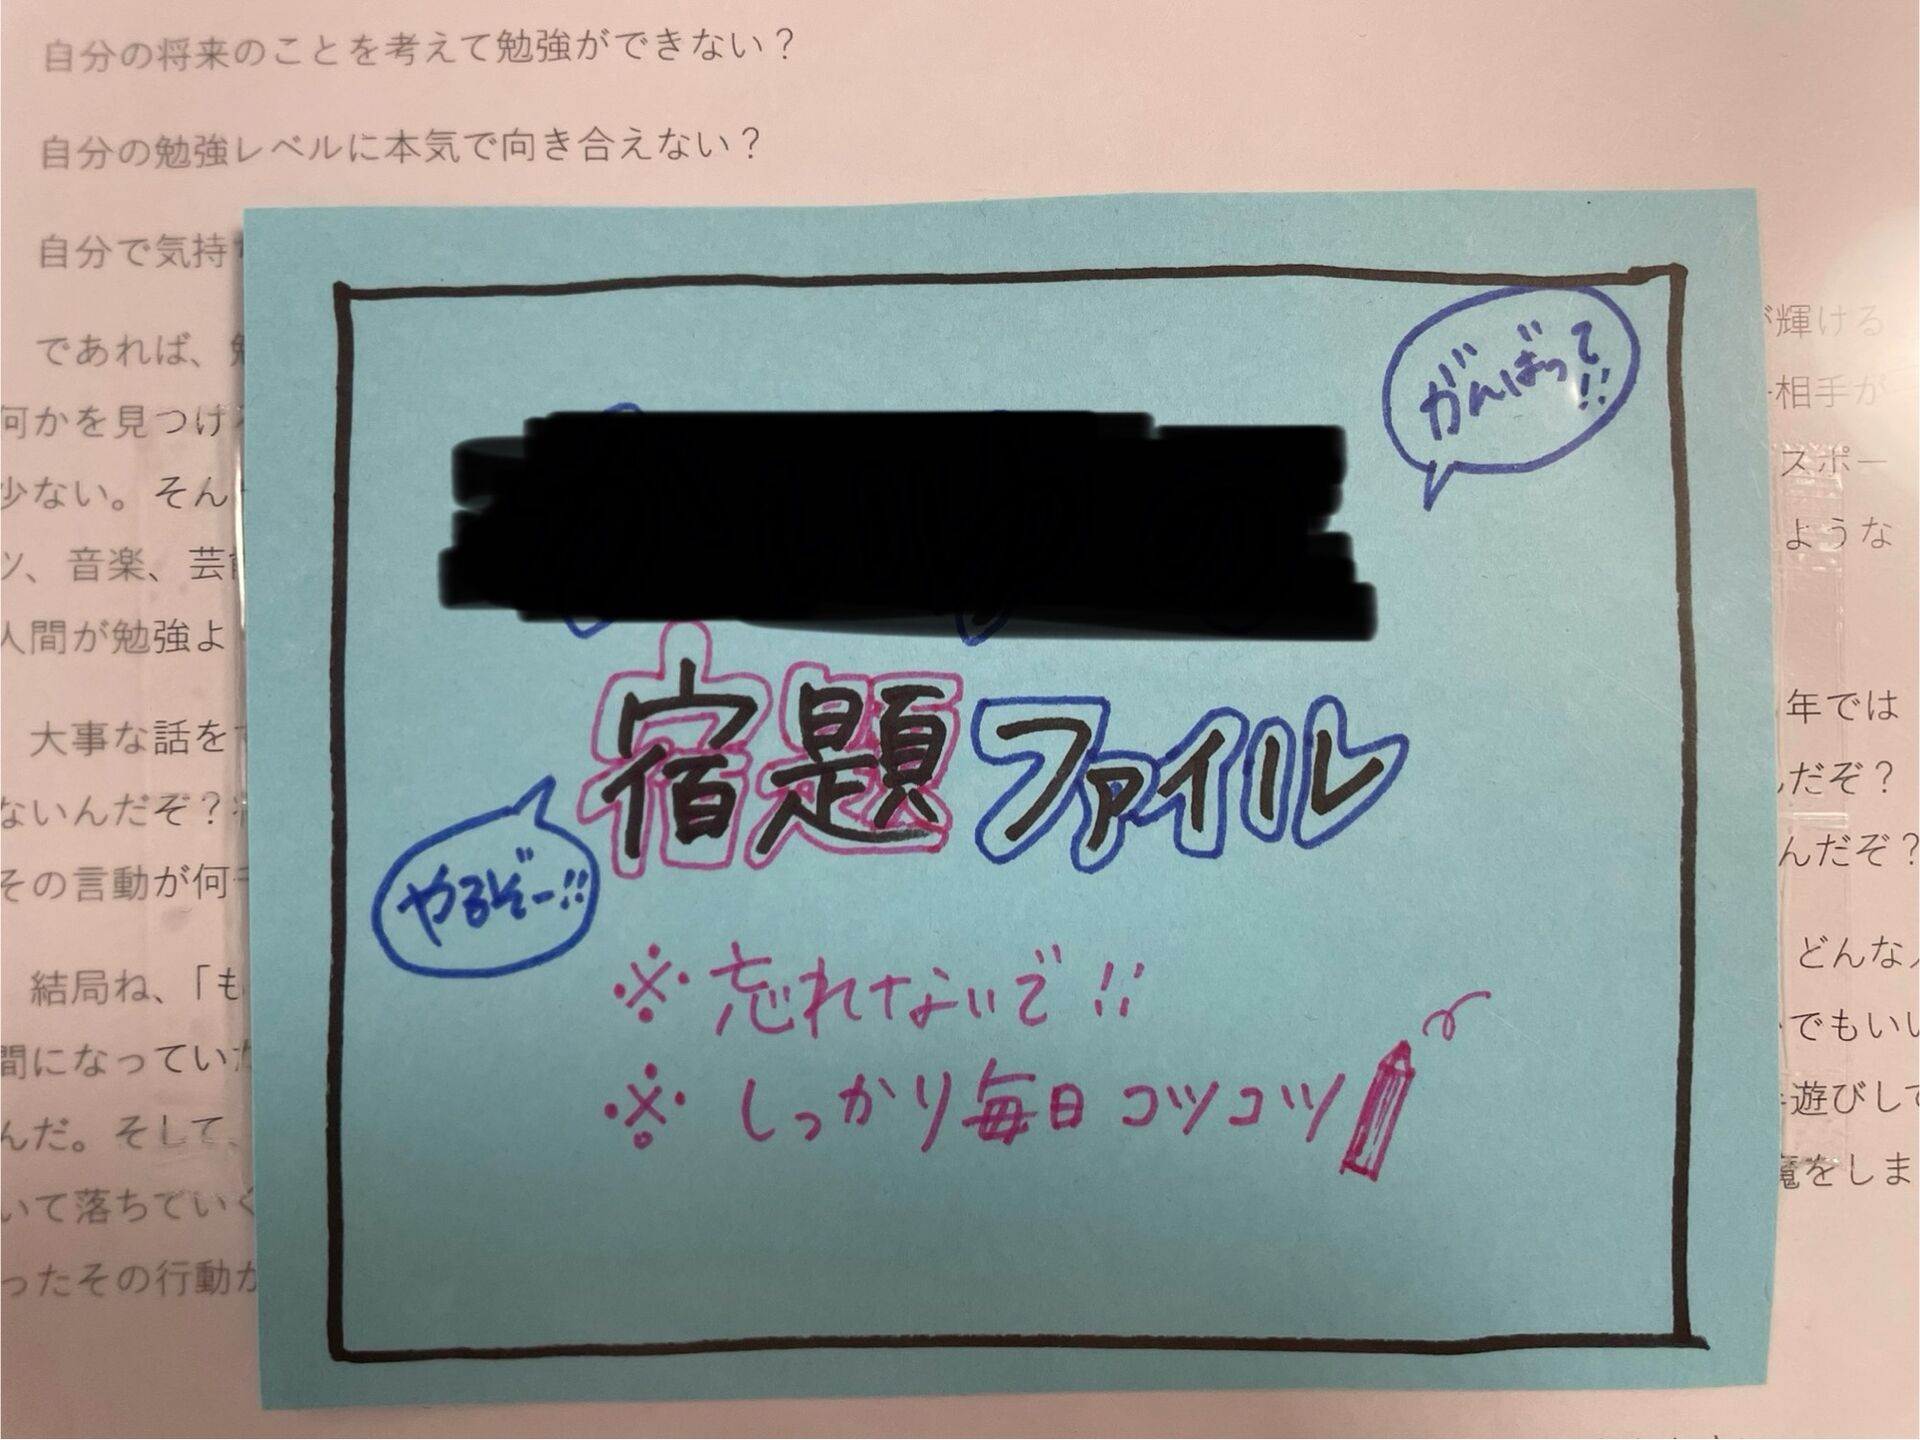 自分の将来のことを考えて勉強ができない？
自分の勉強レベルに本気で向き合えない？
自分で気持
であれば、
が輝ける
何かを見つけ
相手が
少ない。そん
スポー
ツ、音楽、芸
ような
人間が勉強よ
大事な話を
年では
ないんだぞ？
んだぞ？
その言動が何
んだぞ？
結局ね、「も
どんな
間になってい
でもいい
んだ。そして、
遊びして
いて落ちていく
魔をしま
ったその行動が
がんばって!!
宿題ファイル
やるぞー!!
※忘れないで!!
※しっかり毎日コツコツ